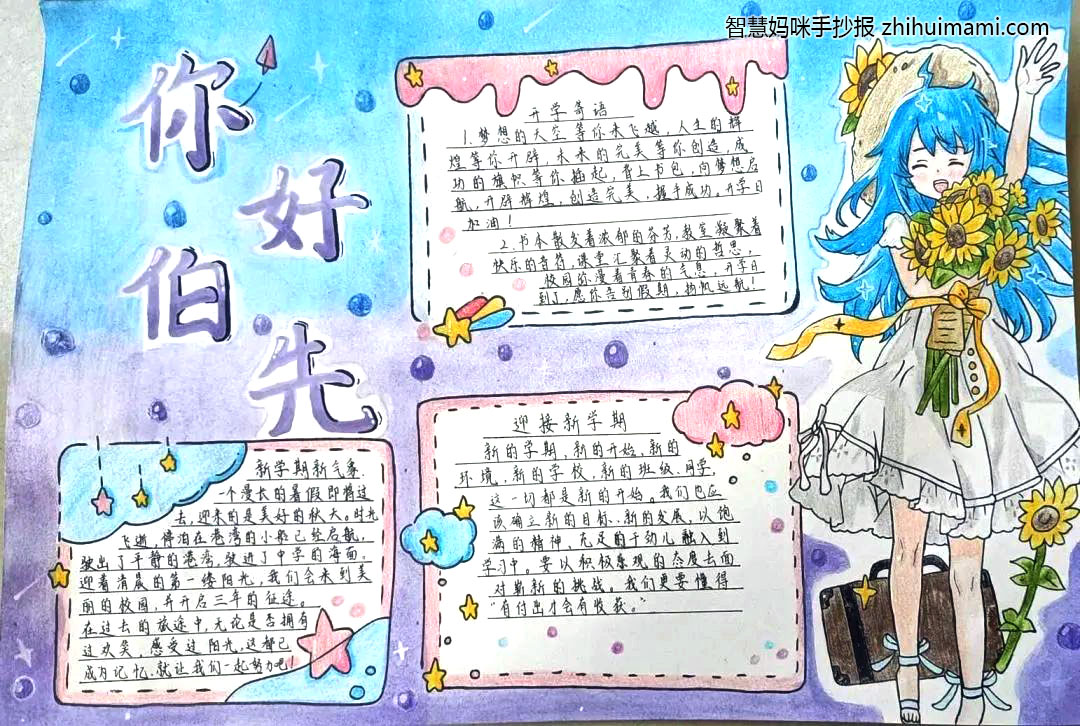 智慧妈咪手抄报 zhihuimami.com
你好
伯先
开学寄语
1.梦想的天空等你来飞越,人生的辉
煌等你开辟,未来的完美等你创造,成
功的旗帜等你插起,背上书包,向梦想启
航,开辟辉煌,创造完美,握手成功。开学日
加油!
2.书本散发着浓郁的芬芳,教室凝聚着
快乐的音符,课堂汇聚着灵动的哲思,
校园弥漫着青春的气息,开学日
到了,愿你告别假期,扬帆远航!
迎接新学期
新的学期,新的开始,新的
环境,新的学校,新的班级、同学,
这一切都是新的开始。我们也应
该确立新的目标、新的发展,以饱
满的精神、充足的干劲儿融入到
学习中。要以积极乐观的态度去面
对崭新的挑战。我们更要懂得
"有付出才会有收获。"
新学期新气象
一个漫长的暑假即将过
去,迎来的是美好的秋天。时光
飞逝,停泊在港湾的小船已经启航,
驶出了平静的港湾,驶进了中学的海面。
迎着清晨的第一缕阳光,我们会来到美
丽的校园,并开启三年的征途。
在过去的旅途中,无论是否拥有
过欢笑,感受过阳光,这都已
成为记忆,就让我们一起努力吧!